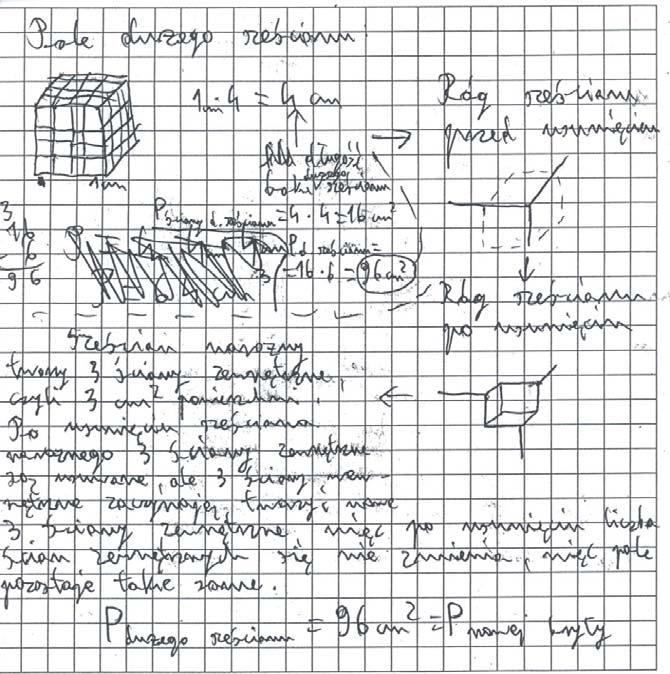 Pole dużego sześcianu:
1cm · 4 = 4 cm
długość
boku dużego sześcianu
P ściany d. sześcianu = 4 · 4 = 16 cm²
P d. sześcianu =
= 16 · 6 = 96 cm²
1cm
3
16
6
96
Róg sześcianu
przed usunięciem
Róg sześcianu
po usunięciu
Sześcian narożny
tworzy 3 ściany zewnętrzne,
czyli 3 cm² powierzchni.
Po usunięciu sześcianu
narożnego 3 ściany zewnętrzne
są usuwane, ale 3 ściany wew-
nętrzne zaczynają tworzyć nowe
3 ściany zewnętrzne, więc po usunięciu liczba
ścian zewnętrznych się nie zmienia, więc pole
pozostaje takie same.
P dużego sześcianu = 96 cm² = P nowej bryły